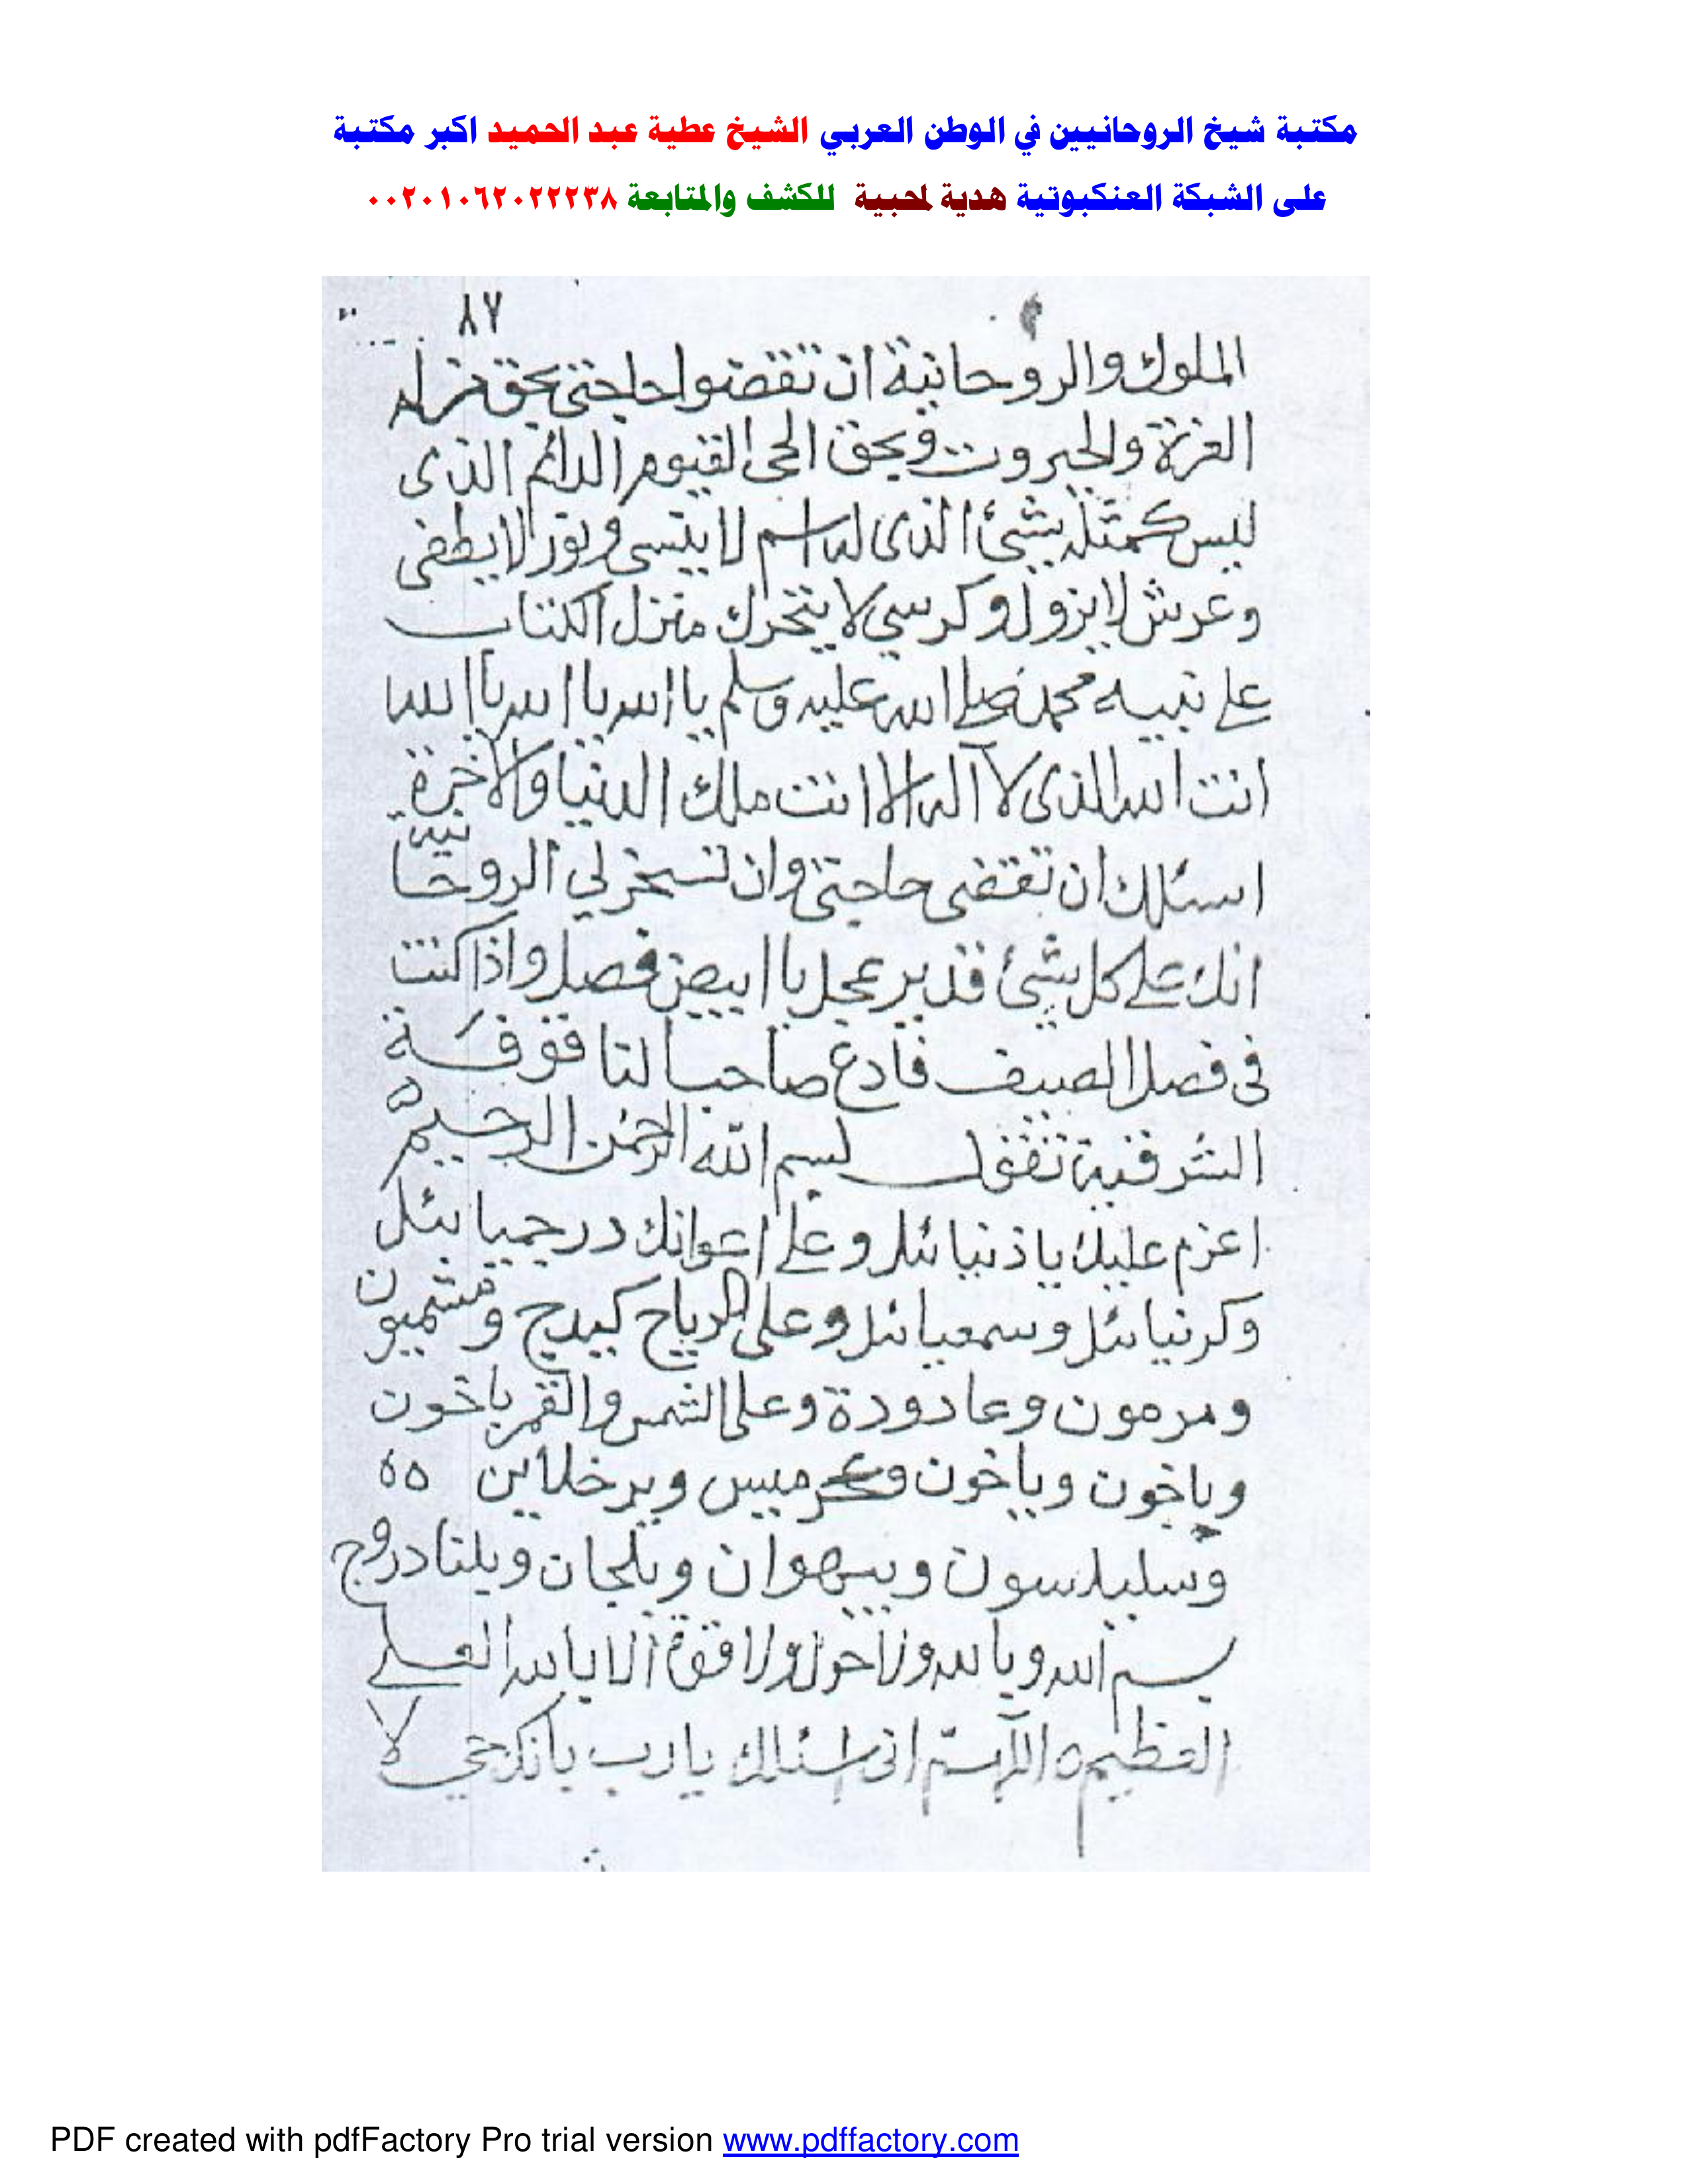 مكتبة شيخ الروحانيين في الوطن العربي الشيخ عطية عبد الحميد اكبر مكتبة
على الشبكة العنكبوتية هدية لمحبية للكشف والمتابعة ٠٠٢٠١٠٦٢٠٢٢٢٣٨
٨٧
الملوك والروحانية ان تقضوا حاجتى بحق من له
العزة والجبروت وبحق الحى القيوم الدائم الذى
ليس كمثله شئ الذى له اسم لا ينسى ونور لا يطفى
وعرش لا يزول وكرسي لا يتحرك منزل الكتاب
على نبيه محمد صلى الله عليه وسلم يا الله يا الله يا الله
انت الله الذى لا اله الا انت ملك الدنيا والاخرة
اسئلك ان تقضى حاجتى وان تسخر لي الروحانية
انك على كل شئ قدير عجل يا ابيض فصل واذا كنت
فى فصل الصيف فادع صاحب
الشرقية تقول بسم الله الرحمن الرحيم
اعزم عليك يا ذنيائل وعلى اعوانك درجيائل
وكرنيائل وسمعيائل وعلى الرياح كيدج وشميون
ومرمون وعادودة وعلى الشمس والقمر باخون
وباخون وياخون ميس وبرخلاين ٥٥
وسليلسون وبيهوان وبلجان ويلتادروج
بسم الله وبالله ولا حول ولا قوة الا بالله العلى
العظيم ٥ اللهم انى اسئلك يارب لا
PDF created with pdfFactory Pro trial version www.pdffactory.com